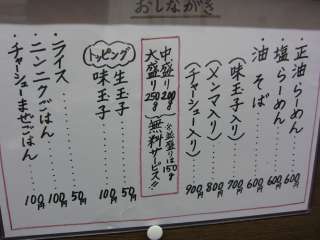 おしながき
正油らーめん 600円
塩らーめん 600円
油そば 600円
(味玉子入り) 700円
(メンマ入り) 800円
(チャーシュー入り) 900円
(※並盛りは150g)
中盛り200g
大盛り250g
無料サービス!!
トッピング
生玉子 50円
味玉子 100円
ライス 50円
ニンニクごはん 100円
チャーシューまぜごはん 100円